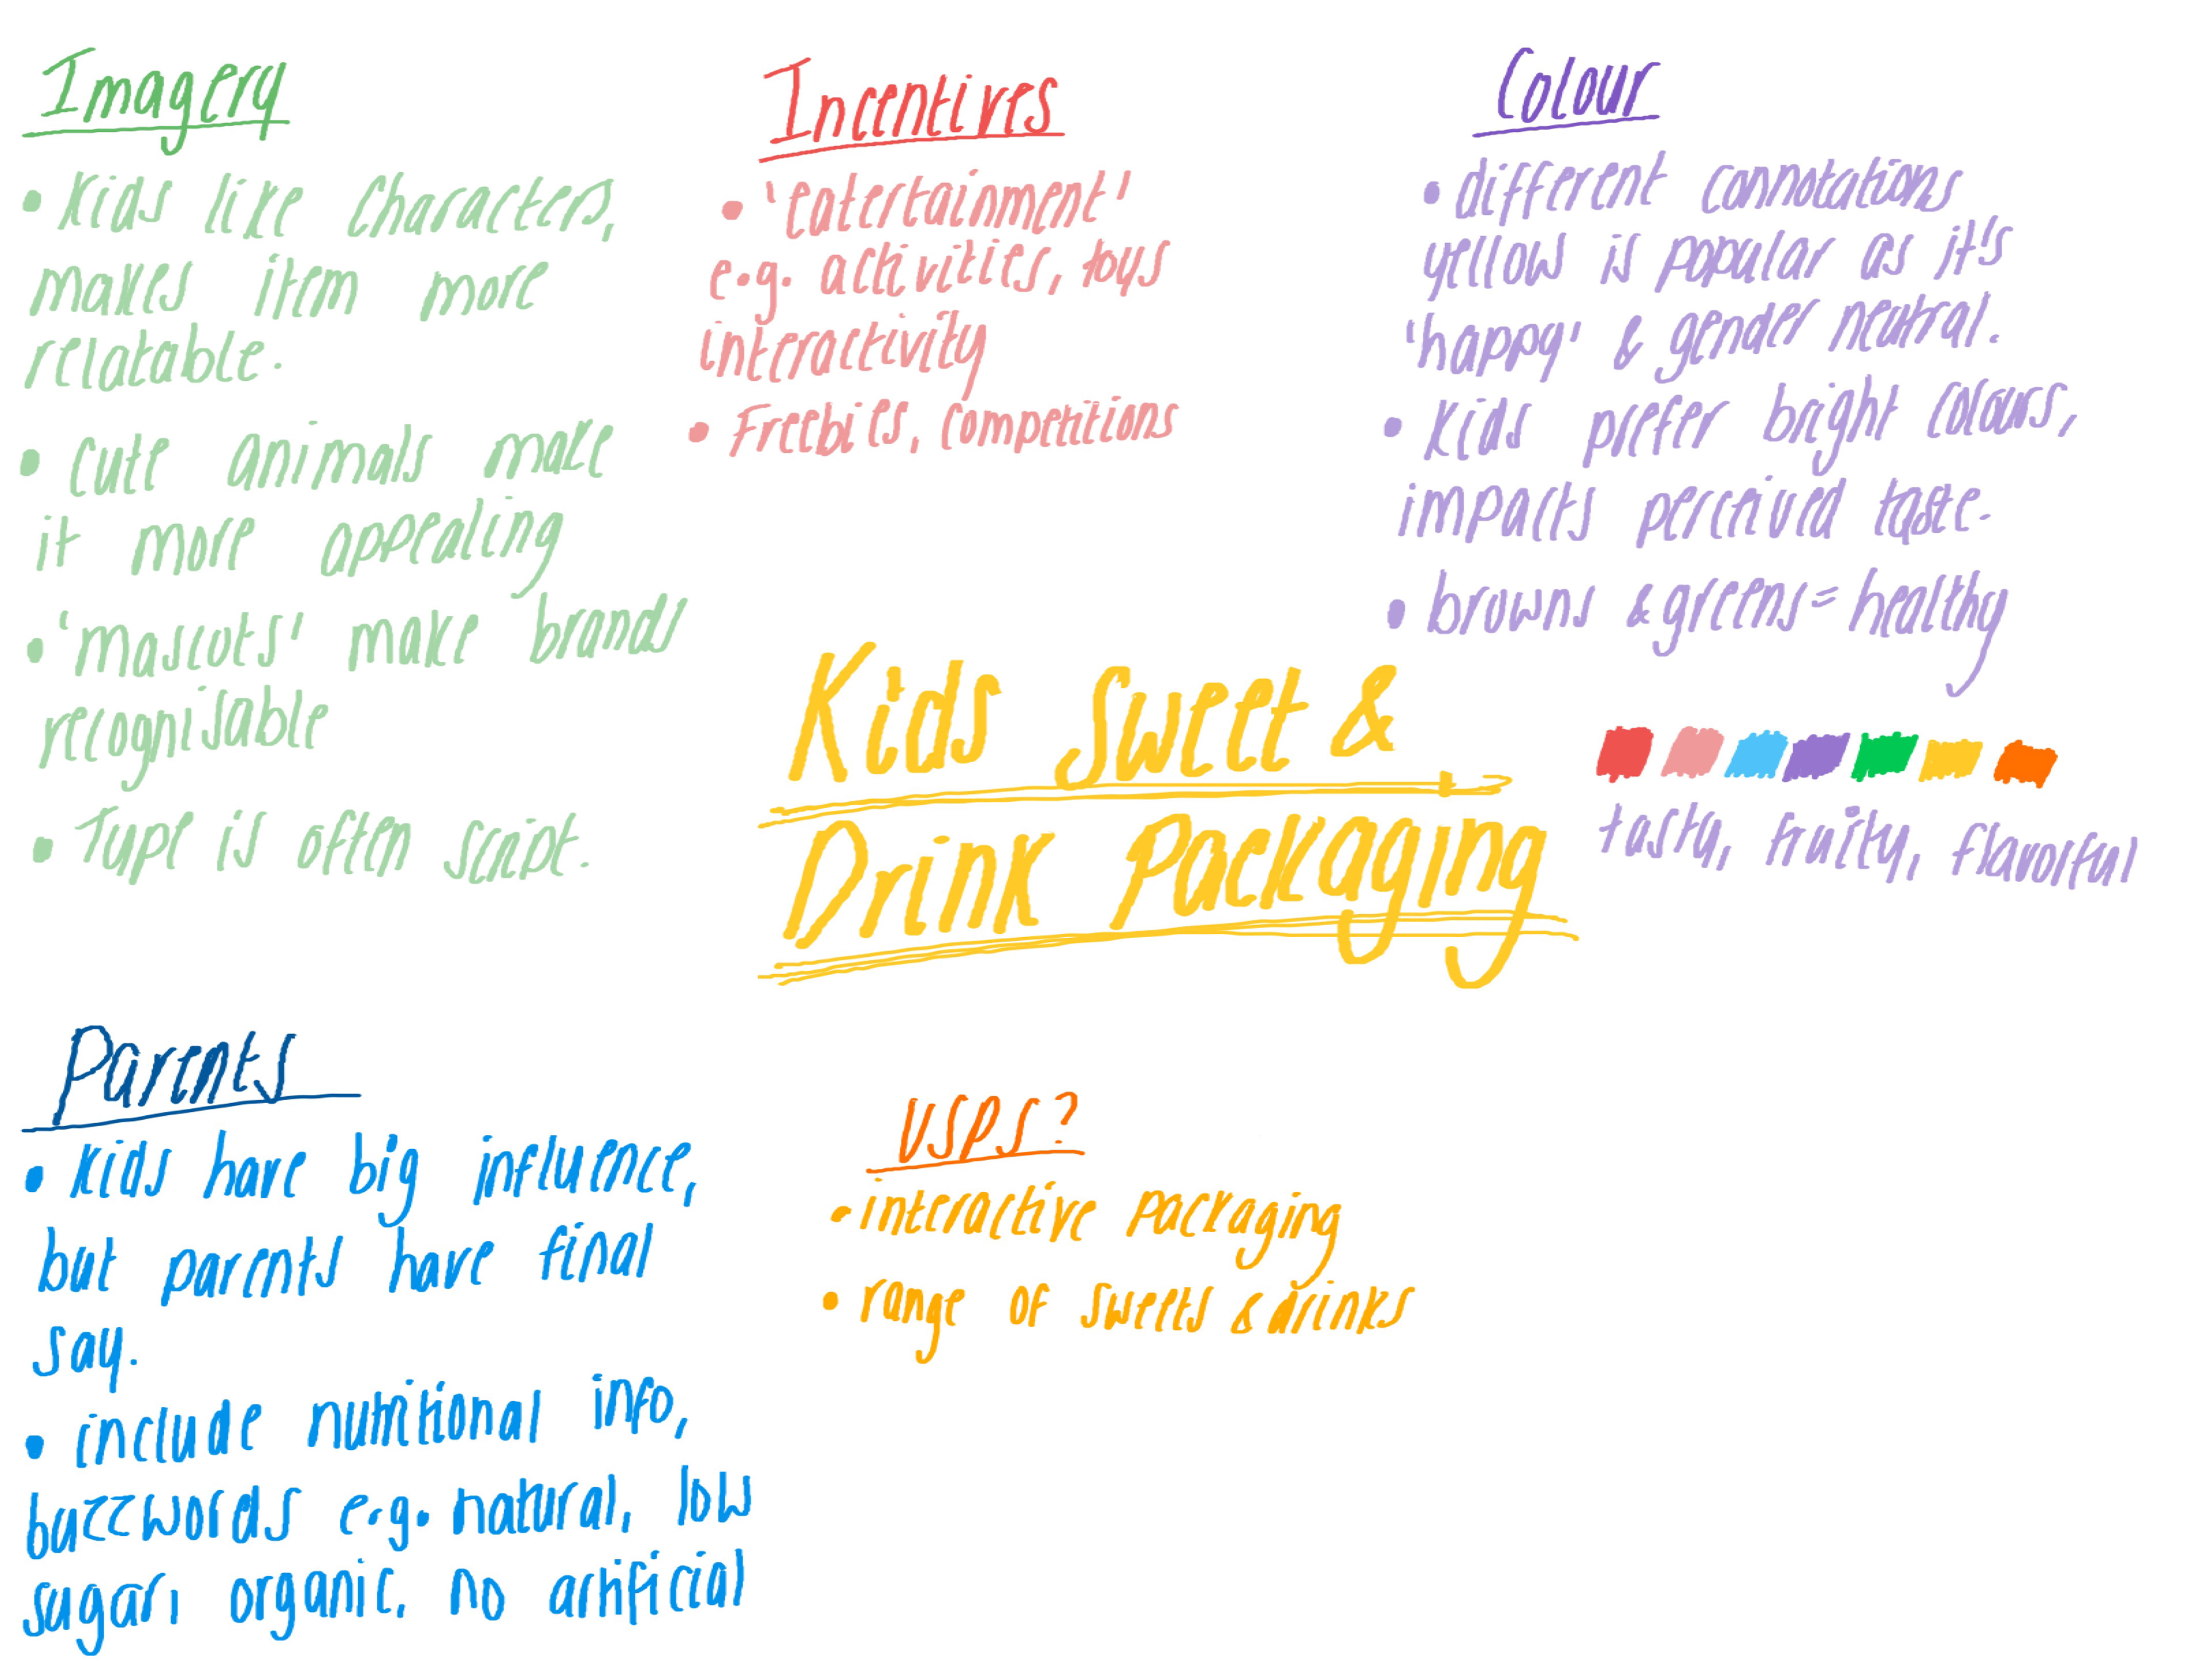 Imagery
• Kids like characters,
makes item more
relatable.
• cute animals make
it more appealing
• 'mascots' make brands
recognisable
• Type is often script.
Incentives
• 'eatertainment'
e.g. activities, toys
interactivity
• Freebies, competitions
Colour
• different connotations
yellow is popular as it's
'happy' & gender neutral.
• Kids prefer bright colours,
impacts perceived taste.
• browns & greens = healthy
tasty, fruity, flavorful
Kids Sweet &
Drink Packaging
Parents
• Kids have big influence,
but parents have final
say.
• include nutritional info,
buzzwords e.g. natural, low
sugar, organic, no artificial
USPS?
• interactive packaging
• range of sweets & drinks